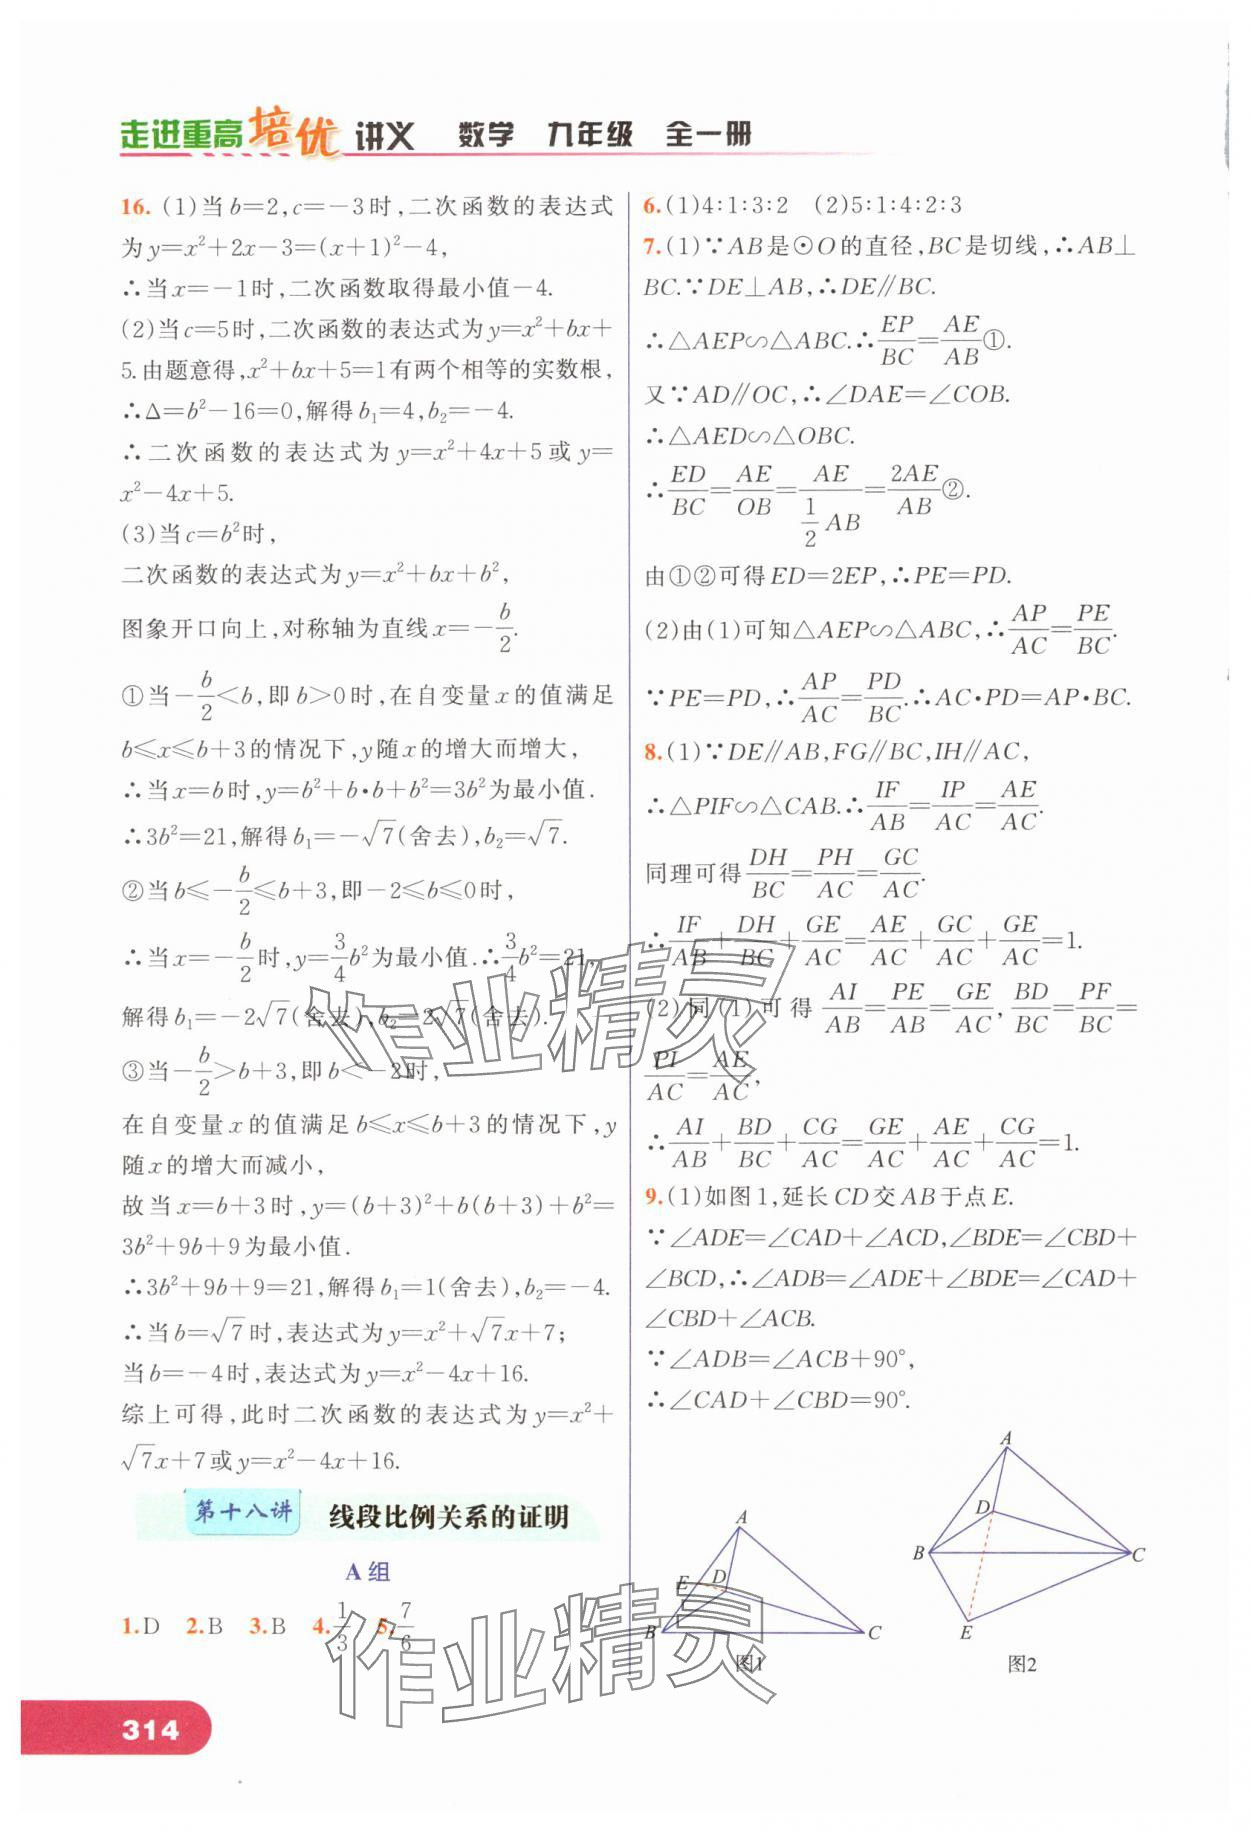 走进重高培优 讲义 数学 九年级 全一册
16. (1)当b=2,c=-3时,二次函数的表达式
为y=x²+2x-3=(x+1)²-4,
∴当x=-1时,二次函数取得最小值-4.
(2)当c=5时,二次函数的表达式为y=x²+bx+
5.由题意得,x²+bx+5=1有两个相等的实数根,
∴Δ=b²-16=0,解得b₁=4,b₂=-4.
∴二次函数的表达式为y=x²+4x+5或y=
x²-4x+5.
(3)当c=b²时,
二次函数的表达式为y=x²+bx+b²,
图象开口向上,对称轴为直线x=-b/2.
①当-b/2<b,即b>0时,在自变量x的值满足
b≤x≤b+3的情况下,y随x的增大而增大,
∴当x=b时,y=b²+b•b+b²=3b²为最小值.
∴3b²=21,解得b₁=-√7(舍去),b₂=√7.
②当b≤-b/2≤b+3,即-2≤b≤0时,
∴当x=-b/2时,y=3/4b²为最小值.∴3/4b²=21,
解得b₁=-2√7(舍去),b₂=2√7(舍去).
③当-b/2>b+3,即b<-2时,
在自变量x的值满足b≤x≤b+3的情况下,y
随x的增大而减小,
故当x=b+3时,y=(b+3)²+b(b+3)+b²=
3b²+9b+9为最小值.
∴3b²+9b+9=21,解得b₁=1(舍去),b₂=-4.
∴当b=√7时,表达式为y=x²+√7x+7;
当b=-4时,表达式为y=x²-4x+16.
综上可得,此时二次函数的表达式为y=x²+
√7x+7或y=x²-4x+16.
第十八讲 线段比例关系的证明
A组
1.D 2.B 3.B 4.1/3 5.7/6
6.(1)4:1:3:2 (2)5:1:4:2:3
7.(1)∵AB是⊙O的直径,BC是切线,∴AB⊥
BC.∵DE⊥AB,∴DE∥BC.
∴△AEP∽△ABC.∴EP/BC=AE/AB①.
又∵AD∥OC,∴∠DAE=∠COB.
∴△AED∽△OBC.
∴ED/BC=AE/OB=AE/(1/2 AB)=2AE/AB②.
由①②可得ED=2EP,∴PE=PD.
(2)由(1)可知△AEP∽△ABC,∴AP/AC=PE/BC.
∵PE=PD,∴AP/AC=PD/BC.∴AC•PD=AP•BC.
8.(1)∵DE∥AB,FG∥BC,IH∥AC,
∴△PIF∽△CAB.∴IF/AB=IP/AC=AE/AC.
同理可得DH/BC=PH/AC=GC/AC.
∴IF/AB+DH/BC+GE/AC=AE/AC+GC/AC+GE/AC=1.
(2)同(1)可得 AI/AB=PE/AB=GE/AC,BD/BC=PF/BC=
PI/AC=AE/AC,
∴AI/AB+BD/BC+CG/AC=GE/AC+AE/AC+CG/AC=1.
9.(1)如图1,延长CD交AB于点E.
∵∠ADE=∠CAD+∠ACD,∠BDE=∠CBD+
∠BCD,∴∠ADB=∠ADE+∠BDE=∠CAD+
∠CBD+∠ACB.
∵∠ADB=∠ACB+90°,
∴∠CAD+∠CBD=90°.
A
E
D
B
C
图1
A
D
B
C
E
图2
作业精灵
作业精灵
314